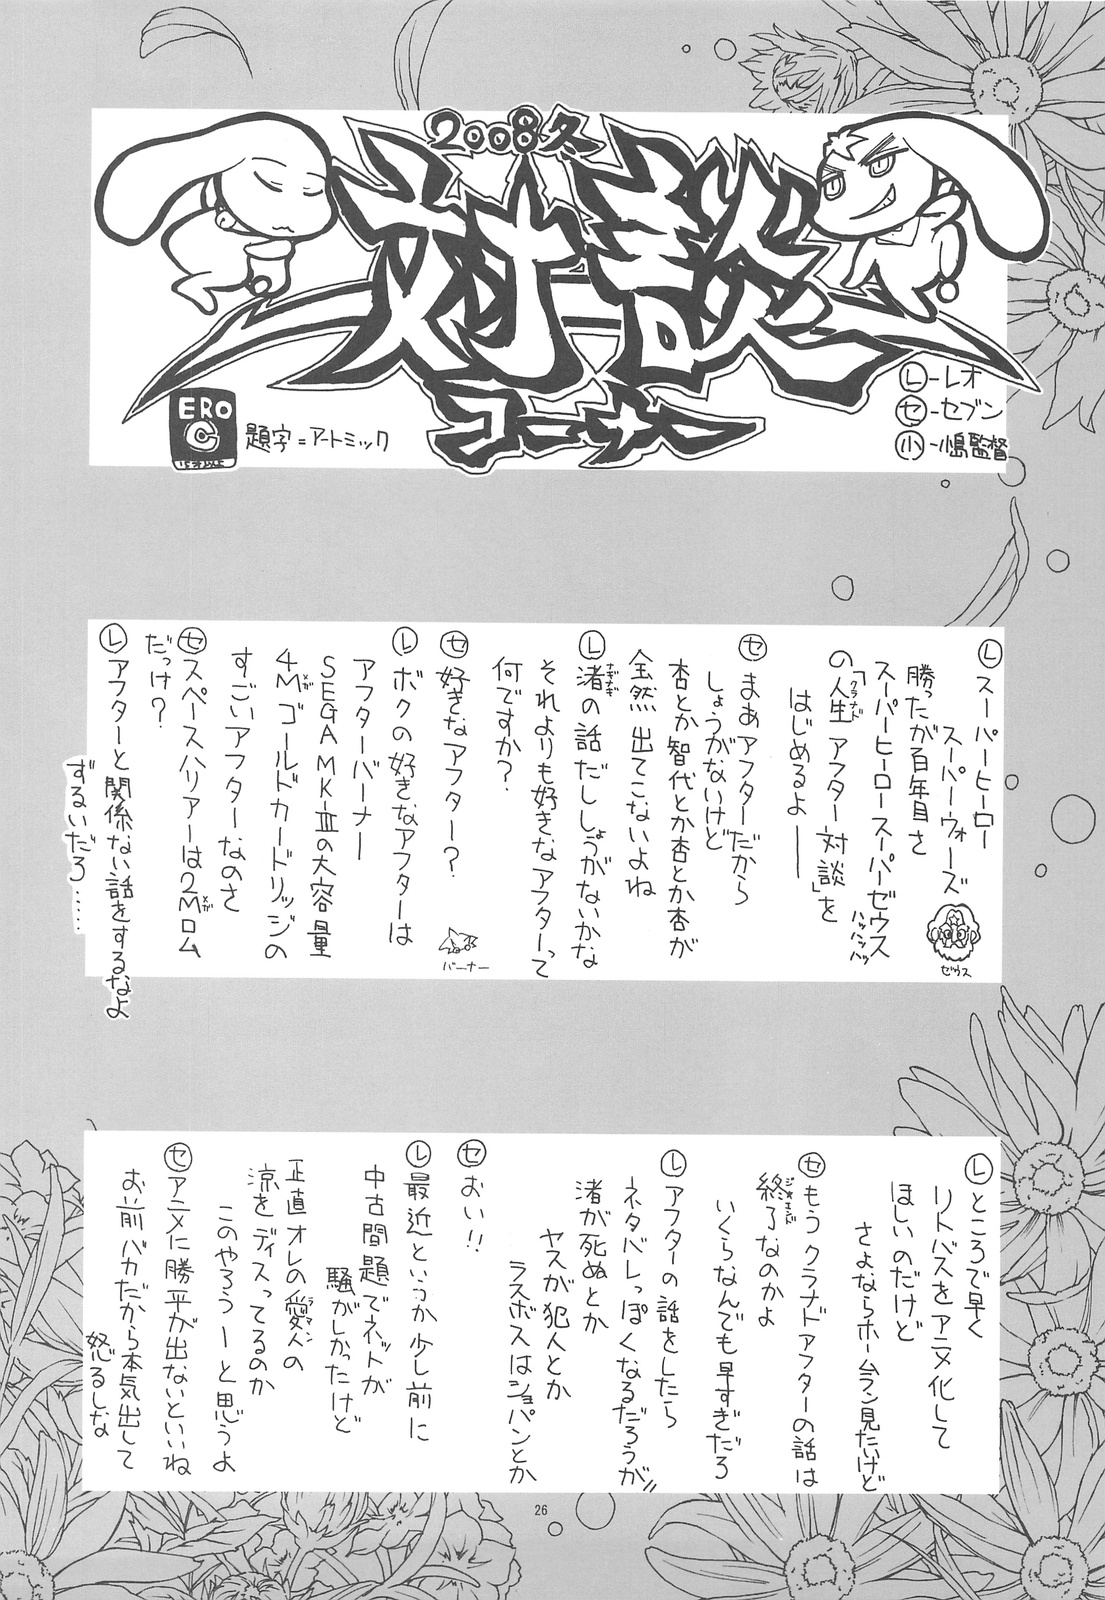 2008冬
対談
コーナー
ERO
C
題字=アートミック
Ⓛ-レオ
セ-セブン
小-小島監督
Ⓛスーパーヒーロー
スーパーウォーズ
勝ったが百年目さ
スーパーヒーロースーパーゼウス
ハッハッハッ
の「人生アフター対談」を
クラナド
はじめるよ――
ゼウス
セ まあアフターだから
しょうがないけど
杏とか智代とか杏とか杏が
全然出てこないよね
Ⓛ渚の話だししょうがないかな
なぎなぎ
それよりも好きなアフターって
何ですか?
セ好きなアフター?
バーナー
Ⓛボクの好きなアフターは
アフターバーナー
SEGA MK-Ⅲの大容量
4Mゴールドカードリッジの
メガ
すごいアフターなのさ
セスペースハリアーは2Mロム
メガ
だっけ?
Ⓛアフターと関係ない話をするなよ
ずるいだろ……
Ⓛところで早く
リトバスをアニメ化して
ほしいのだけど
さよならホームラン見たいけど
セもうクラナドアフターの話は
終了なのかよ
ジ・エンド
いくらなんでも早すぎだろ
Ⓛアフターの話をしたら
ネタバレっぽくなるだろうが!!
渚が死ぬとか
ヤスが犯人とか
ラスボスはショパンとか
セおい!!
Ⓛ最近というか少し前に
中古問題でネットが
騒がしかったけど
正直オレの愛人の
ラマン
涼をディスってるのか
このやろうーと思うよ
セアニメに勝平が出ないといいね
お前バカだから本気出して
怒るしな
26